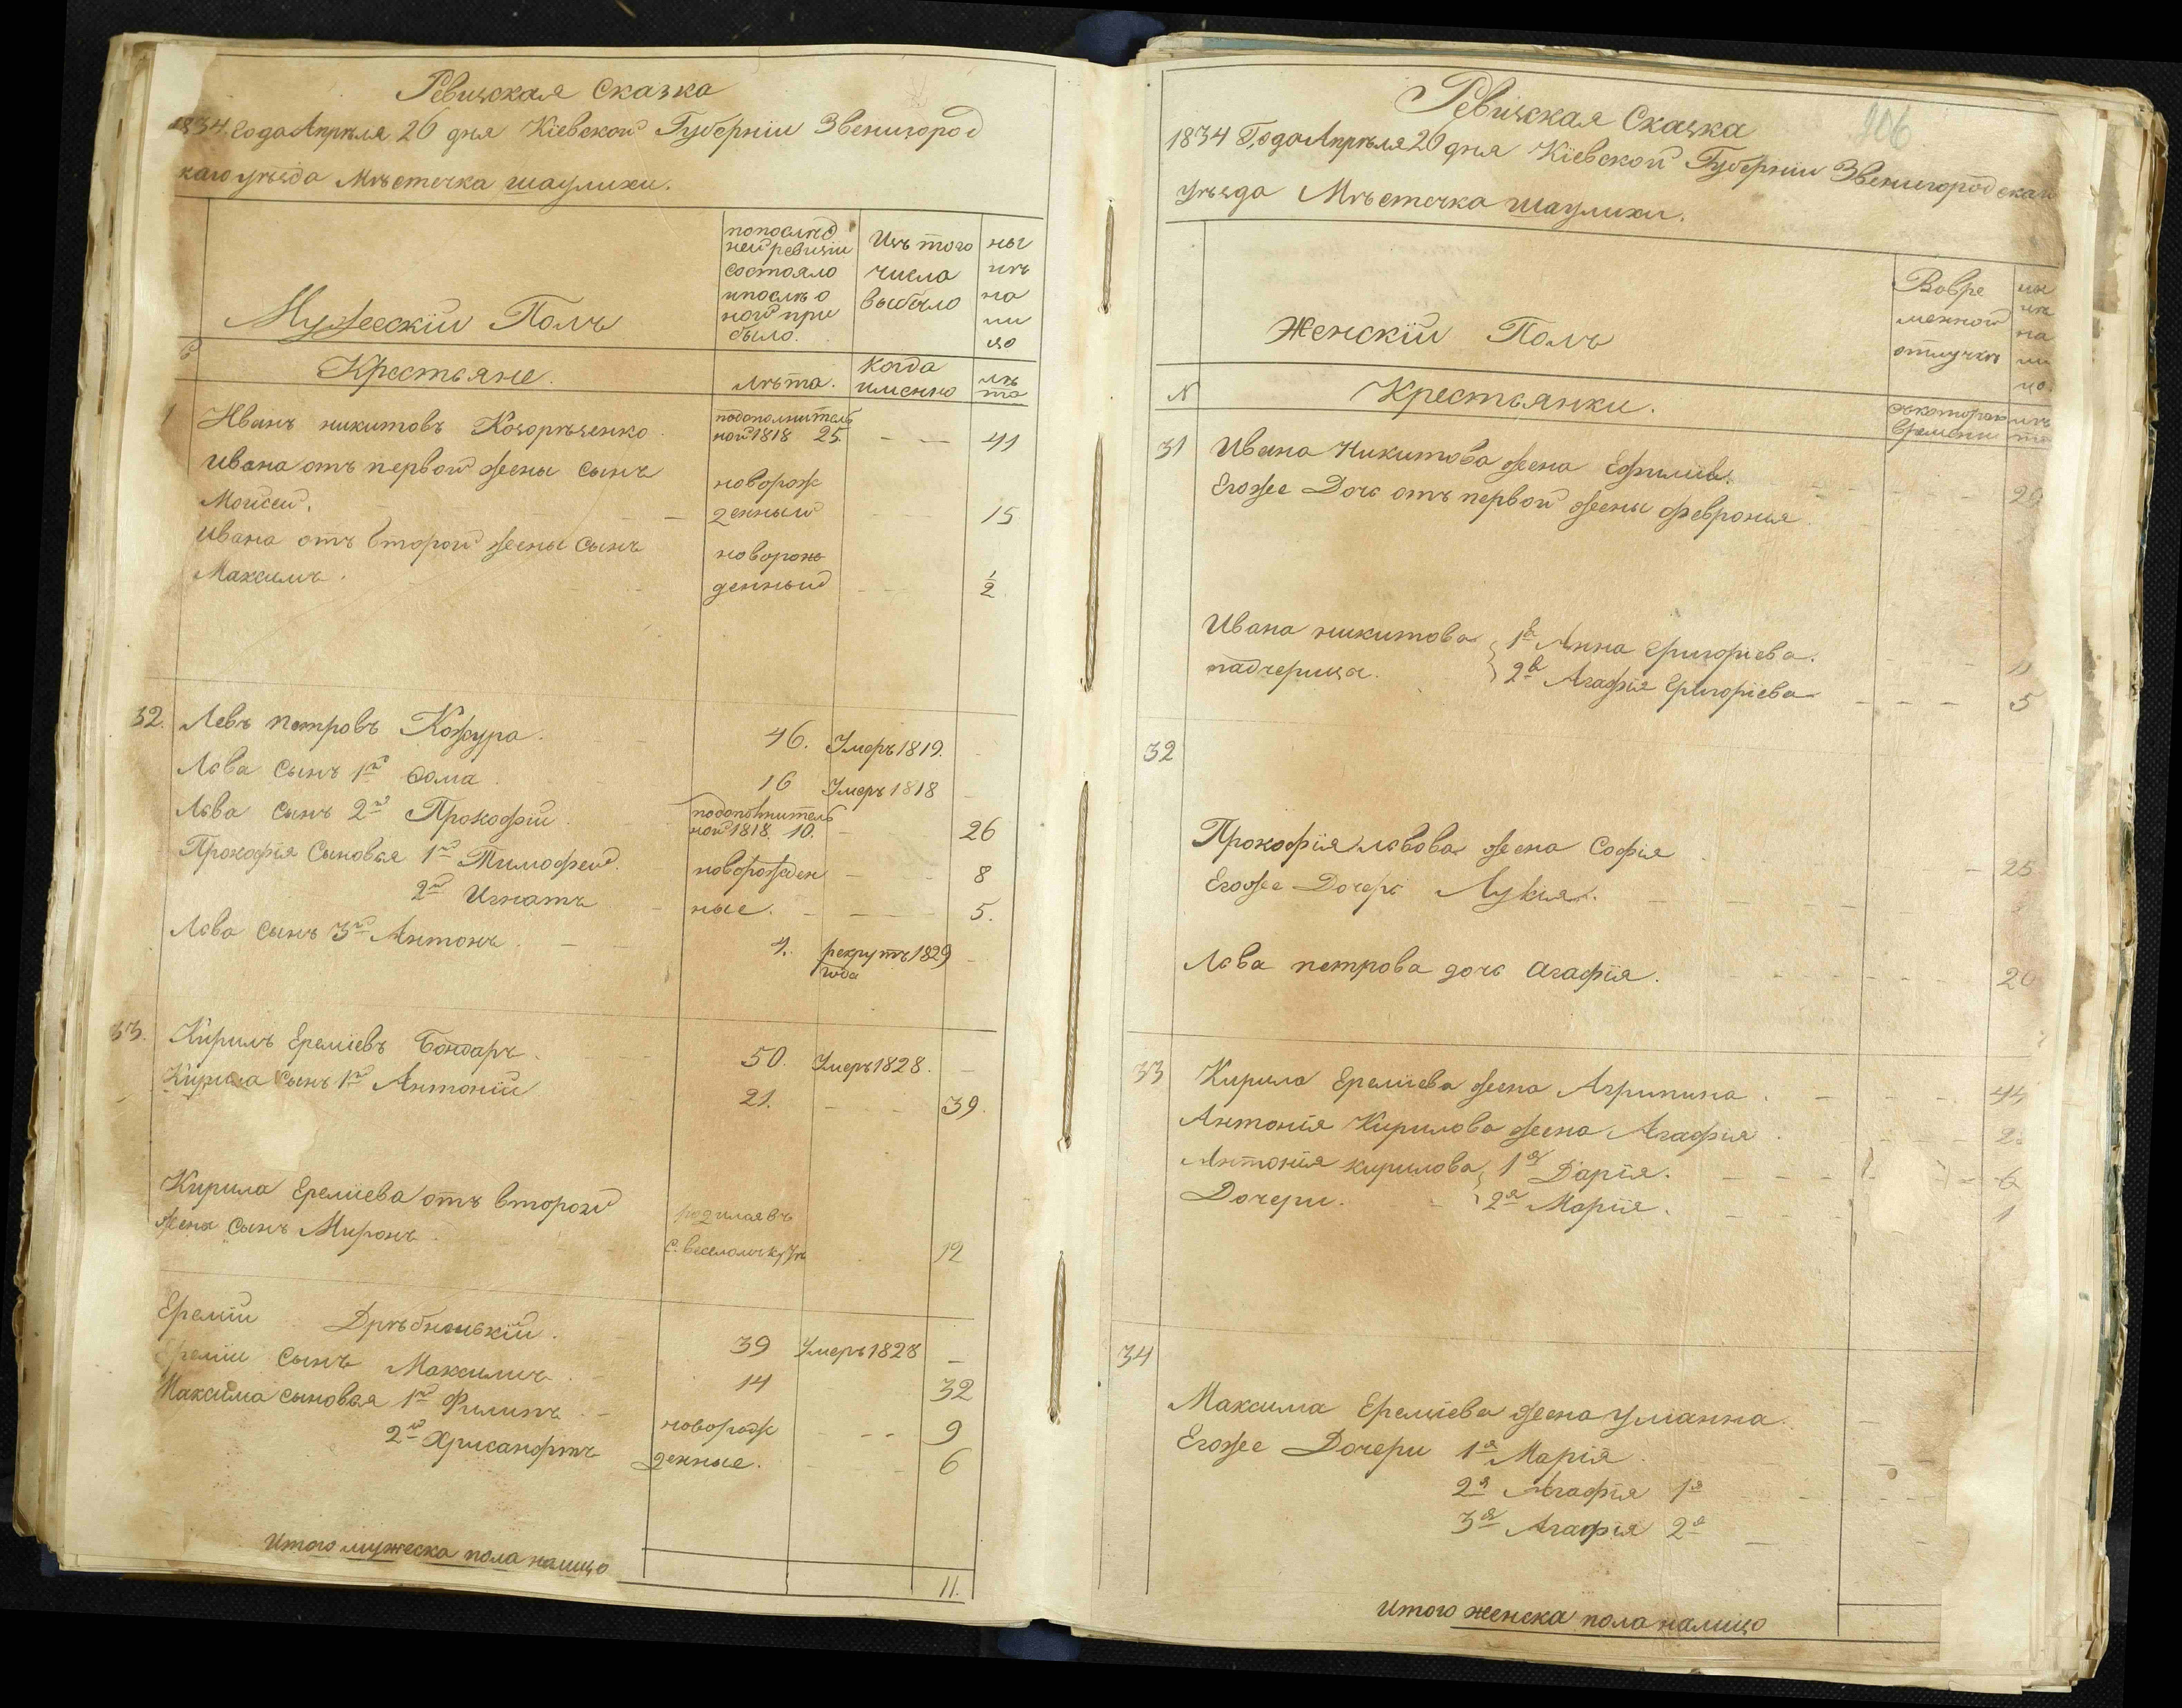 Ревизская Сказка
1834 года Апрѣля 20 дня Кіевской Губерніи Звенигород
каго уѣзда Мѣстечка шаулихи.
Мужескій Полъ
попослѣд
ней ревизіи
состояло
ипослѣ о
ной при
было.
Изъ того
числа
выбыло
ны
нѣ
на
ли
цо
Крестьяне.
лѣта.
когда
именно
лѣ
та
1 Иванъ никитовъ Козорѣзенко
подополнитель
ной 1818 25. — — 41
Ивана отъ первой жены сынъ
Мойсей.
новорож
денный — 15
Ивана отъ второй жены сынъ
Максимъ.
новорож
денный — ½
32. Левъ петровъ Кожура. 46. Умеръ 1819. —
Льва сынъ 1й Фома. 16 Умеръ 1818 —
Льва сынъ 2й Прокофій.
подополнитель
ной 1818. 10. — 26
Прокофія Сыновья 1й Тимофей. новорожден — 8
2й Игнатъ ные. — 5.
Льва сынъ 3й Антонъ. — 4. рекрутъ 1829
года —
33. Кирилъ Ереміевъ Бондаръ. 50. Умеръ 1828. —
Кирила сынъ 1й Антоній 21. — 39.
Кирила Ереміева отъ второй
жены сынъ Миронъ.
родился въ
с. 12
Еремій Дрѣбненькій. 39 Умеръ 1828 —
Еремій сынъ Максимъ. 14 32
Максима сыновья 1й Филипъ — новорож — 9
2й Хрисанфтъ денные. — 6
Итого мужеска пола налицо 11.
906
Ревизская Сказка
1834 Года Апрѣля 20 дня Кіевской Губерніи Звенигородскаго
уѣзда Мѣстечка шаулихи.
Женскій Полъ
Вовре
менной
отлучкѣ
ны
нѣ
на
ли
цо.
N Крестьянки.
съкотораго
времени
лѣ
та
31 Ивана Никитова жена Ефимія. — 20
Егоже Дочь отъ первой жены февронія
Ивана никитова 1я Анна григоріева. — 11
падчерицы. 2я Агафія григоріева — 5
32
Прокофія львова жена Софія — 25
Егоже Дочерь Лукія. —
Льва петрова дочь агафія. — 20
33 Кирила Ереміева жена Агрипина. — 44
Антонія Кирилова жена Агафія. —
Антонія кирилова 1я Дарія. — 6
Дочери. 2я Марія. — 1
34
Максима Ереміева жена уліанна. —
Егоже Дочери 1я Марія. —
2я Агафія 1я —
3я Агафія 2я —
Итого женска пола налицо